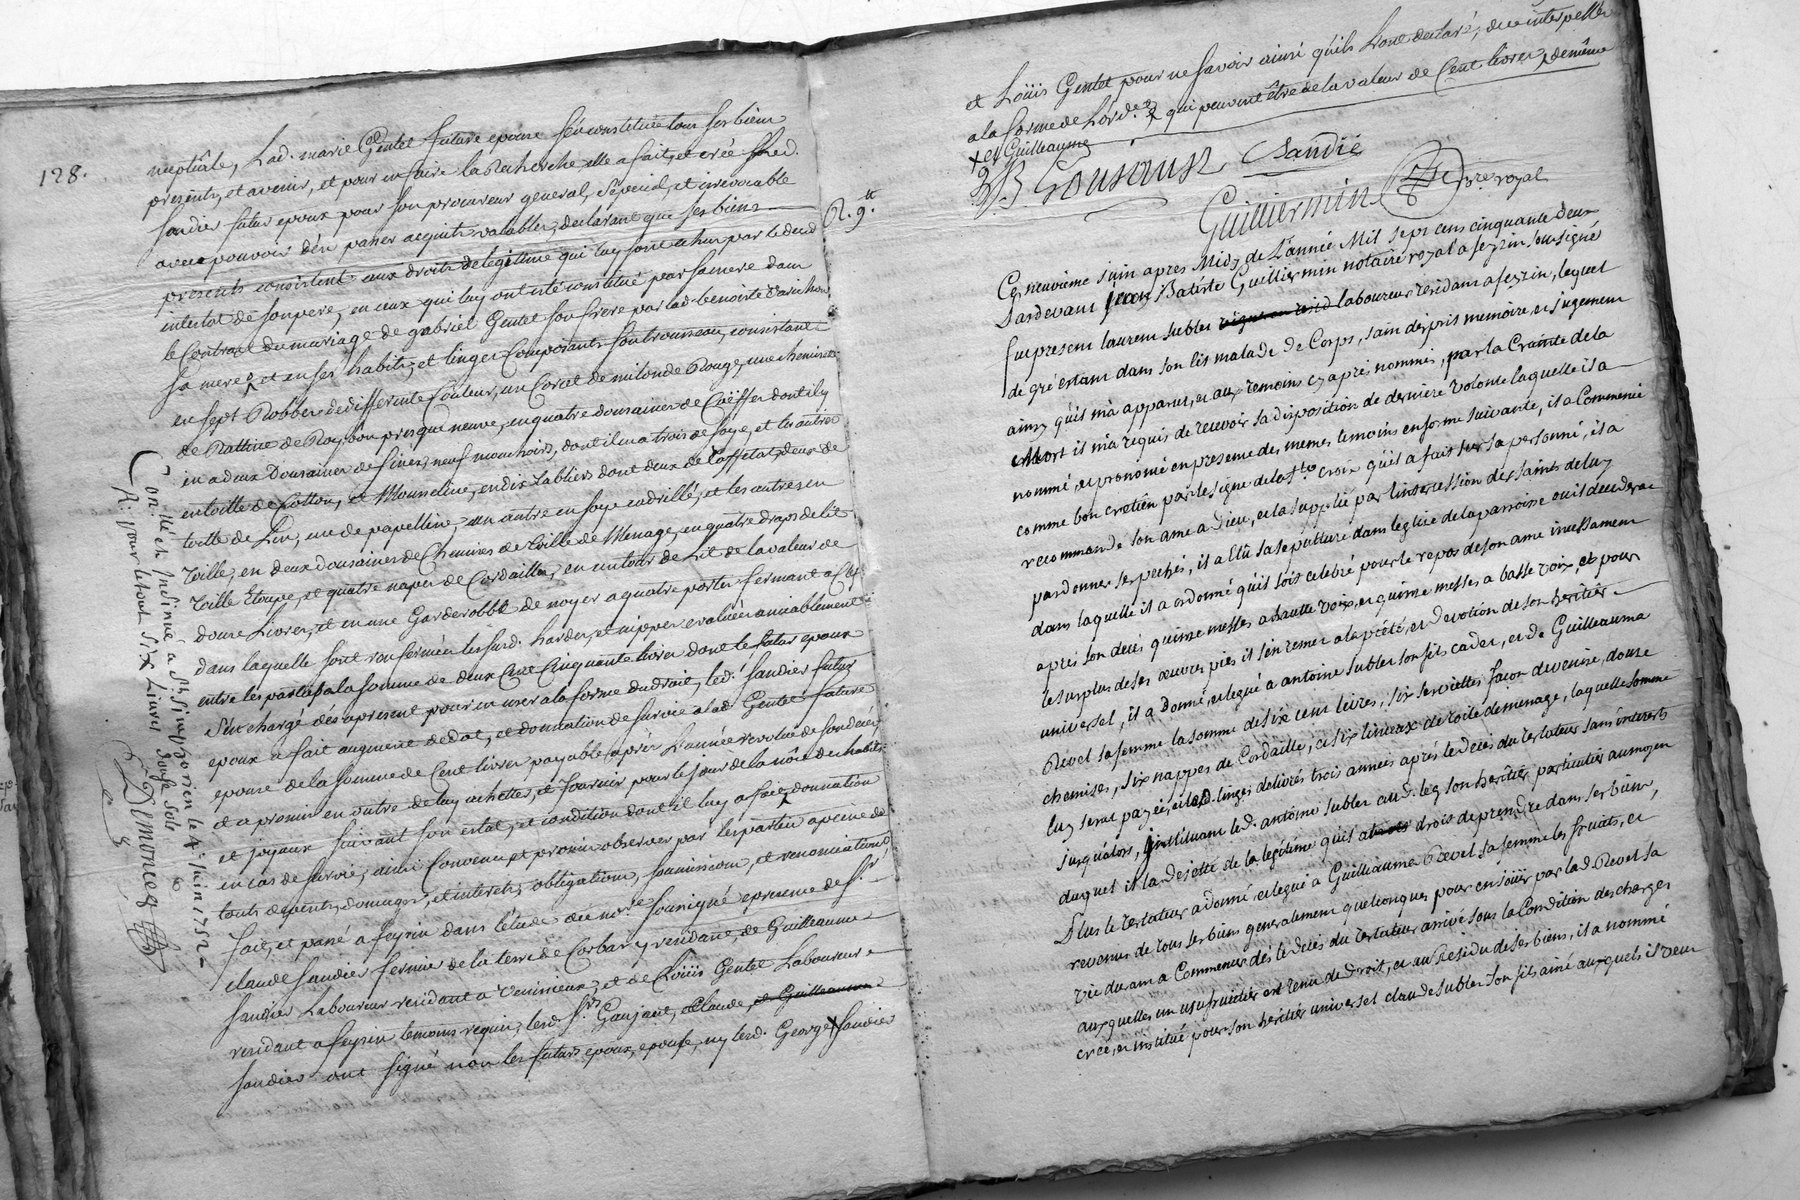 128.
nuptiale, Lad. marie Gentet future epouse s'est constituée tous ses biens
presents, et avenir, et pour en faire la Recherche elle a fait, et crée led.
sandier futur epoux pour son procureur general, special, et irrevocable
avec pouvoir d'en passer acquits valables, declarant que ses biens
presents consistent aux droits de legitime qui luy sont echus par le deced
intestat de son pere, en ceux qui luy ont eté constitué par sa mere dans
le Contrat du mariage de gabriel Gentet son frere par lad. benoiste
sa mere, et en ses habits, et linges Composants son trousseau, consistant
en sept Robbes de differente Couleur, un Corcet de milonde Rouge, une chemisette
de Rattine de Roy, bon presque neuve, en quatre douzaines de Coëffes dont il y
en a deux Douzaines de fines, neuf mouchoirs, dont il en a trois de soye, et les autres
en toille de Cotton, et Mousseline, en dix tabliers dont deux de taffetat, deux de
toille de Lin, un de papelline, un autre en soye cadrillé, et les autres en
Toille, en deux douzaines de Chemises de Toille de Menage, en quatre draps de lit
Toille Etoupe, et quatre napes de Cordaille, en un tour de Lit de la valeur de
douze Livres, et en une Garderobbe de noyer a quatre portes fermant a Clef
dans laquelle sont renfermées lesd. hardes, et nippes evaluées amiablement
entre les parties a la somme de deux Cent Cinquante livres dont le futur epoux
s'est chargé dès apresent pour en user a la forme du droit, led. sandier futur
epoux a fait augment de dot, et donnation de survie a lad. Gentet future
epouse de la somme de Cent livres payable après L'année revolüe de son decés,
et a promis en outre de luy achetter, et fournir pour le jour de la nôce des habits
et joyaux suivant son estat, et condition dont il luy a fait donnation
en cas de survie, ainsi convenu et promis observer par les parties a peine de
touts depents, domages, et interets, obligations, soumissions, et renonciations
fait, et passé a feyzin dans l'étude dud. no.re soussigné en presence de S.r
claude sandier fermier de la terre de Corbas y residant, de Guilleaume
sandier Laboureur residant a Venissieux, et de Loüis Gentet Laboureur
residant a feyzin temoins requis, lesd. S.rs Goujant, Claude, et Guilleaume
sandier ont signé non les futurs epoux, epouse, ny led. George sandier
Con.llé et insinué a St. Simphorien le 4. juin 1752
R. pour le tout six Livres douse sols
Demoncey
et Loüis Gentet pour ne savoir ainsi qu'ils L'ont declaré, de ce interpellés
a la forme de L'ord.ce qui peuvent être de la valeur de Cent livres, de même
+ et Guilleaume
Goujant Sandié
Guilliermin n.re royal
R. 9.tt
Ce neuvieme juin apres Midy de L'année Mil sept cens cinquante deux
Pardevant Jean Batiste Guilliermin notaire royal a feyzin soussigné
fut present laurent sublet laboureur residant a feyzin, lequel
de gré estant dans son lit malade de Corps, sain d'esprit memoire, et jugement
ainsy qu'il m'a apparus, et aux temoins cy apres nommés, par la Crainte de la
Mort il m'a requis de recevoir sa disposition de derniere volonté laquelle il a
nommé, et prononcé en presence des memes temoins en forme suivante, il a Commencé
comme bon cretien par le signe de la s.te croix qu'il a fait sur sa personne, il a
recommandé son ame a Dieu, et l'a supplié par l'intercession des saints de luy
pardonner ses pechés, il a Elû sa sepulture dans leglise de la parroisse ou il decedera
dans laquelle il a ordonné qu'il soit celebré pour le repos de son ame incessament
apres son decés quinze messes a hautte voix, et quinze messes a basse voix, et pour
le surplus de ses œuvres pies il s'en remet a la piété, et devotion de son heritier
universel, il a donné, et legué a antoine sublet son fils cadet, et de Guilleauma
Revel sa femme la somme de six cent livres, six serviettes facon de venise, douze
chemises, six nappes de Cordaille, et six linceux de toile de menage, laquelle somme
luy serat payée, et led. linges delivrés trois années apres le decés du testateur sans interets
jusqu'alors, instituant led. antoine sublet aud. leg son heritier particulier au moyen
duquel il l'a dejetté de la legitime qu'il a droit de prendre dans ses biens,
Plus le testateur a donné et legué a Guilleauma Revel sa femme les fruits, et
revenus de tous ses biens generalement quelconques pour en joüir par lad. Revel sa
vie durant a Commencer dés le decés du testateur arrivé sous la Condition des charges
auxquelles un usufruitier est tenu de Droit, et au Residu de ses biens, il a nommé
créé, et institué pour son heritier universel claude sublet son fils ainé auxquels il veut